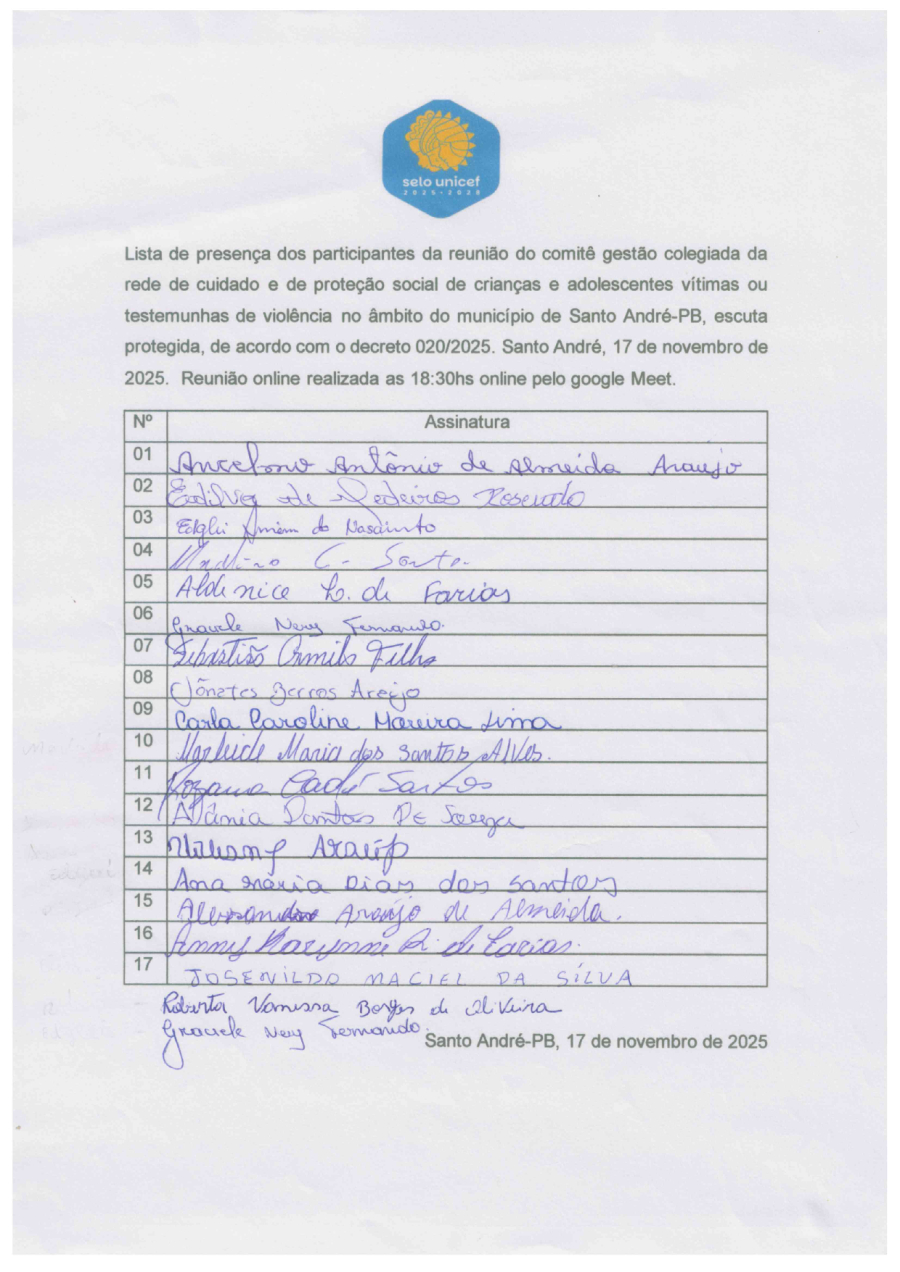 selo unicef
2025-2028
Lista de presença dos participantes da reunião do comitê gestão colegiada da
rede de cuidado e de proteção social de crianças e adolescentes vítimas ou
testemunhas de violência no âmbito do município de Santo André-PB, escuta
protegida, de acordo com o decreto 020/2025. Santo André, 17 de novembro de
2025. Reunião online realizada as 18:30hs online pelo google Meet.
Nº Assinatura
01 Antônio de Almeida Araujo
02 de Medeiros
03 do Nascimento
04 C. Santo
05 Aldenice L. de Farias
06 Nery Fernando.
07 Sebastião Filho
08 Jônatas Barros Araújo
09 Carla Caroline Moreira Lima
10 Marleide Maria dos Santos Alves.
11 Santos
12 Dantas De Souza
13 Araújo
14 Ana Maria Dias dos Santos
15 Araújo de Almeida.
16 Anny Karynne R. de Farias.
17 JOSENILDO MACIEL DA SILVA
Roberta Vanessa Borges de Oliveira
Nery Fernando.
Santo André-PB, 17 de novembro de 2025